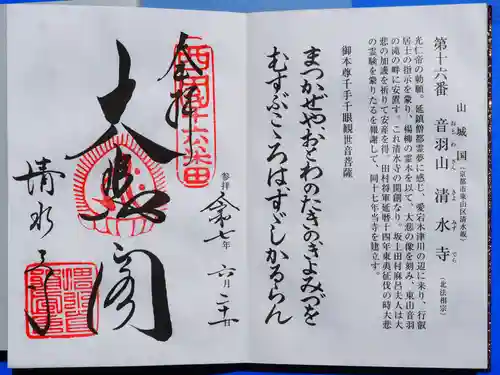 第十六番
山城国
(京都市東山区清水坂)
音羽山 清水寺
おとわさん きよみずでら
(北法相宗)
光仁帝の勅願。延鎮僧都霊夢に感じ、愛宕木津川の辺に来り、行叡
居士の指示を蒙り、楊柳の霊木を以て、大悲の像を刻み、東山音羽
の滝の畔に安置す。これ清水寺の開創なり。坂上田村麻呂夫人は大
悲の加護を祈りて安産を得、田村将軍延暦十四年東夷征伐の時大悲
の霊験を蒙りたるを報謝して、同十七年当寺を建立す。
御本尊千手千眼観世音菩薩
まつかぜや、おとわのたきのきよみづを
むすぶこゝろはすゞしかるらん
奉拝
西国十六番
大悲閣
清水寺
参拝
令和七年 六月 二十一日